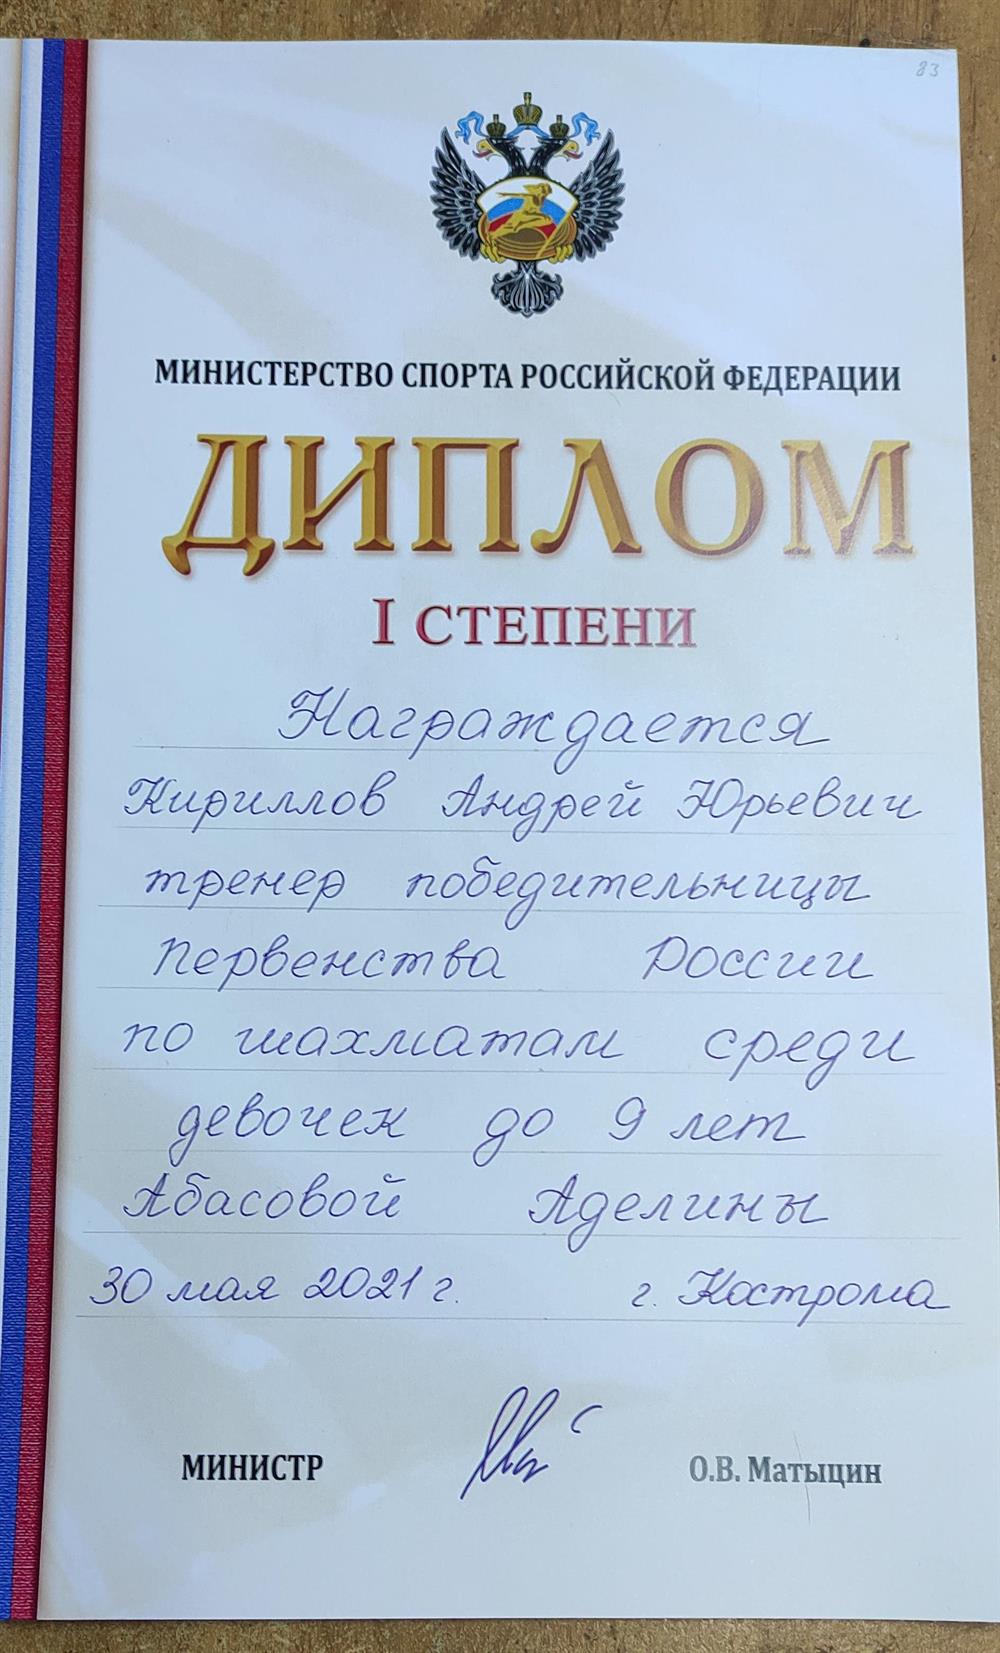 83
МИНИСТЕРСТВО СПОРТА РОССИЙСКОЙ ФЕДЕРАЦИИ
ДИПЛОМ
I СТЕПЕНИ
Награждается
Кириллов Андрей Юрьевич
тренер победительницы
Первенства России
по шахматам среди
девочек до 9 лет
Абасовой Аделины
30 мая 2021 г. г. Кострома
МИНИСТР О.В. Матыцин